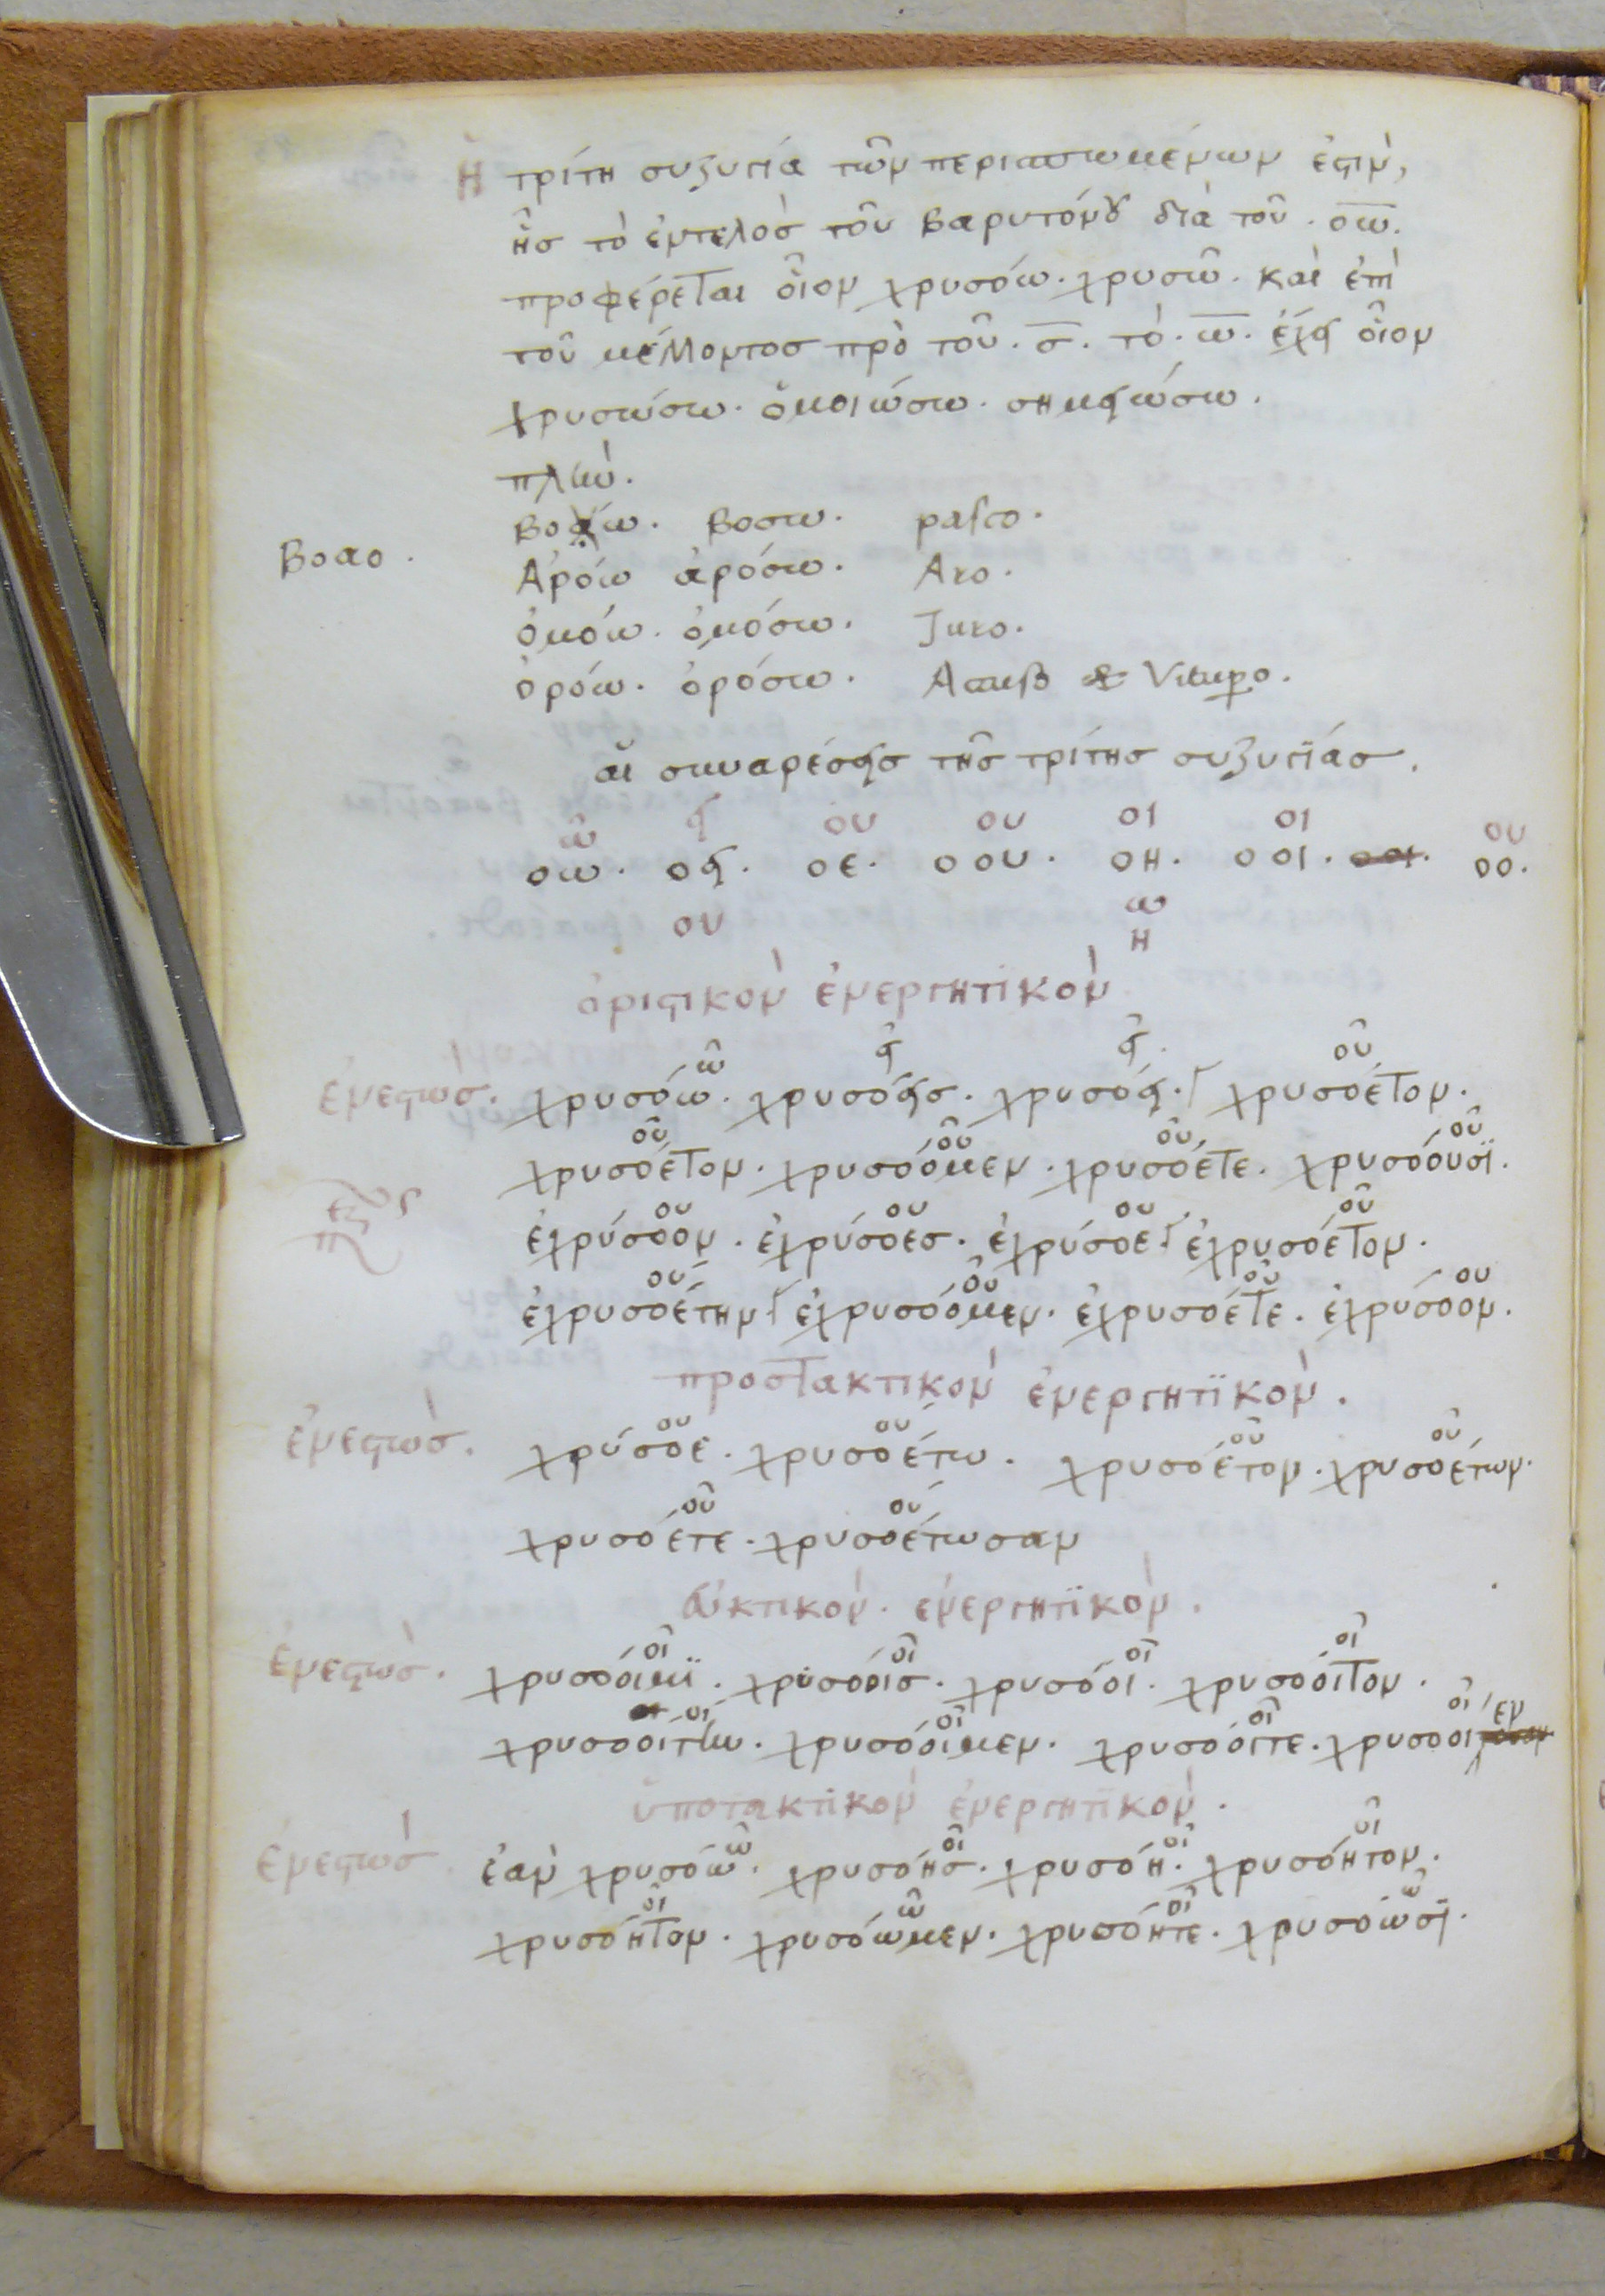 Ἡ τρίτη συζυγία τῶν περισπωμένων ἐστιν,
ἧς τὸ ἐντελὸς τοῦ βαρυτόνου διὰ τοῦ · οω.
προφέρεται οἷον χρυσόω · χρυσῶ · καὶ ἐπὶ
τοῦ μέλλοντος πρὸ τοῦ · σ · τὸ · ω · ἔχει οἷον
χρυσώσω · ὁμοιώσω · σημειώσω ·
πλὴν ·
βοάω · βοσω · pasco ·
βοαο ·
Ἀρόω ἀρόσω · Aro ·
ὀμόω · ὀμόσω · Juro ·
ὀρόω · ὀρόσω · Accuso & Vitupero ·
αἱ συναρέσεις τῆς τρίτης συζυγίας ·
ῶ ει ου ου οι οι ου
οω · οει · οε · οου · οη · οοι · οοι · οο ·
ου ω
η
ὁριστικὸν ἐνεργητικὸν
ῶ εῖ εῖ οῦ
ἐνεστὼς · χρυσόω · χρυσόεις · χρυσόει · χρυσόετον ·
οῦ οῦ οῦ οῦ
χρυσόετον · χρυσόομεν · χρυσόετε · χρυσόουσϊ ·
ου ου ου οῦ
ἐχρύσοον · ἐχρύσοες · ἐχρύσοε · ἐχρυσόετον ·
ού οῦ οῦ ου
ἐχρυσοέτην ἐχρυσόομεν · ἐχρυσόετε · ἐχρύσοον ·
προστακτικὸν ἐνεργητϊκὸν ·
ου ού οῦ οῦ
ἐνεστὼς · χρύσοε · χρυσοέτω · χρυσόετον · χρυσοέτων ·
οῦ ού
χρυσόετε · χρυσοέτωσαν
εὐκτικὸν · ἐνεργητϊκὸν ·
οῖ οῖ οῖ οῖ
ἐνεστὼς · χρυσόοιμϊ · χρυσόοις · χρυσόοι · χρυσοόιτον ·
οί οῖ οῖ οῖ εν
χρυσοοίτην · χρυσόοιμεν · χρυσόοιτε · χρυσοοι
ὑποτακτικὸν ἐνεργητϊκὸν ·
ῶ οῖ οῖ οῖ
ἐνεστὼς ἐὰν χρυσόω · χρυσόης · χρυσόη · χρυσόητον ·
οῖ ῶ οῖ ῶ
χρυσόητον · χρυσόωμεν · χρυσόητε · χρυσοώσϊ ·